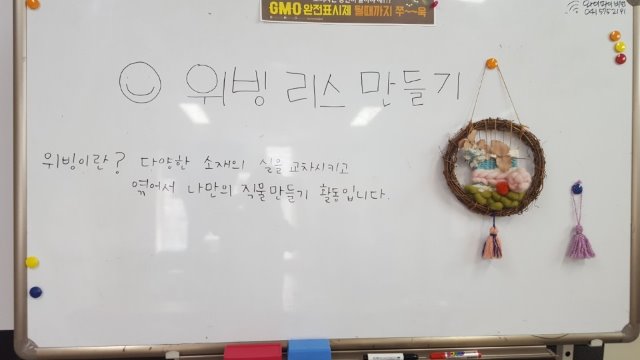 GMO 완전표시제 될때까지 쭈~~욱
위빙 리스 만들기
위빙이란? 다양한 소재의 실을 교차시키고
엮어서 나만의 직물만들기 활동입니다.